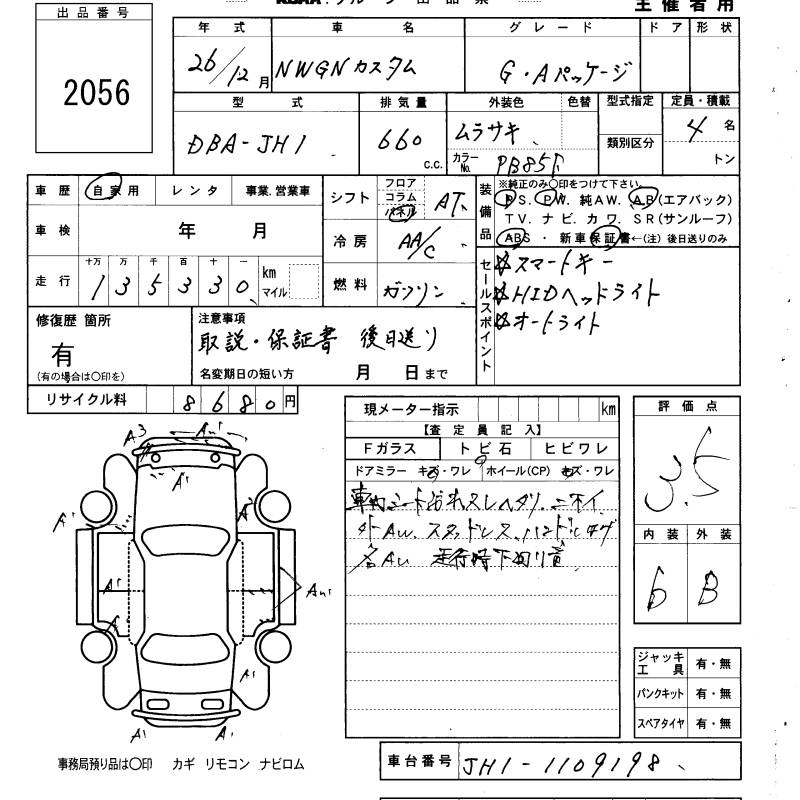 出品番号
2056
主催者用
年式 車名 グレード ドア 形状
26/12月 NWGNカスタム G・Aパッケージ
型式 排気量 外装色 色替 型式指定 定員・積載
DBA-JH1 660 c.c. ムラサキ 類別区分 4名
カラーNo. PB85P トン
車歴 自家用 レンタ 事業.営業車
シフト フロア コラム パネル AT
装備品 ※純正のみ○印をつけて下さい。
PS. PW. 純AW. AB(エアバック)
TV. ナビ. カワ. SR(サンルーフ)
ABS ・ 新車保証書←(注) 後日送りのみ
車検 年 月
冷房 AA/C
走行 十万 万 千 百 十 一
135330 km マイル
燃料 ガソリン
セールスポイント
☆スマートキー
☆HIDヘッドライト
☆オートライト
修復歴 箇所
有
(有の場合は○印を)
注意事項
取説・保証書 後日送り
名変期日の短い方 月 日まで
リサイクル料 8680円
現メーター指示 km
【査定員記入】
Fガラス トビ石 ヒビワレ
ドアミラー キズ・ワレ ホイール(CP) キズ・ワレ
車内シート汚れスレヘタリ.ニオイ
外AW.スタッドレス.ハンドル
各AU 走行時下回り音
評価点
3.5
内装 外装
6 B
A3 A1
A1
A1 A2
A1
A1 AU1
A1
A1 A1
ジャッキ工具 有・無
パンクキット 有・無
スペアタイヤ 有・無
事務局預り品は○印 カギ リモコン ナビロム
車台番号 JH1-1109198